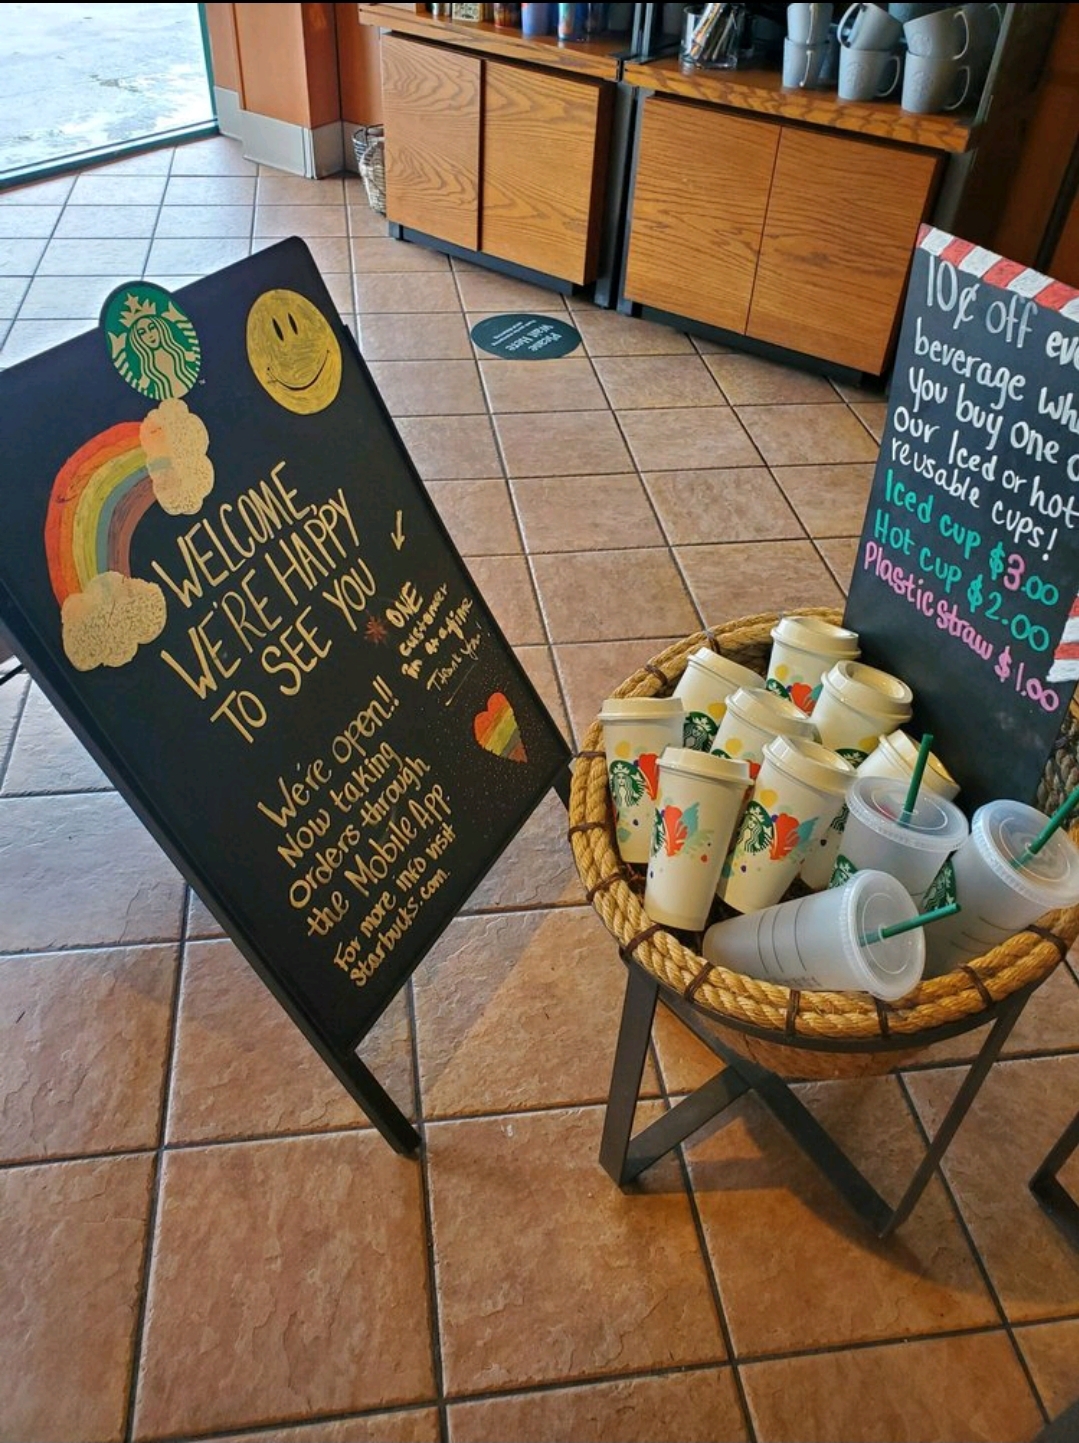 WELCOME,
WE'RE HAPPY
TO SEE YOU
ONE
customer
in at a time
Thank You!
We're open!!
Now taking
orders through
the Mobile App
For more info visit
Starbucks.com.
Please
Wait Here
10¢ off eve
beverage wh
you buy one o
our Iced or hot
reusable cups!
Iced cup $3.00
Hot cup $2.00
Plastic straw $1.00